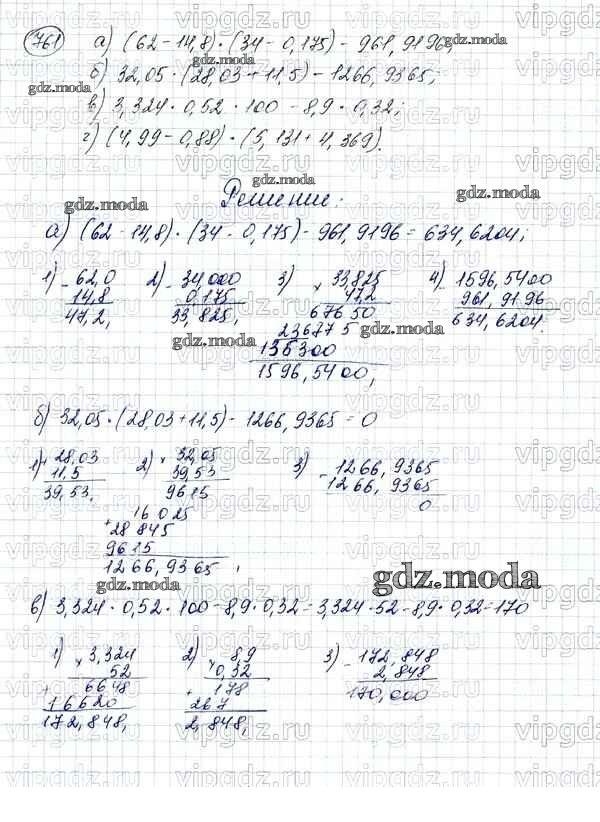 761 а) (62 - 14,8) · (34 - 0,175) - 961,9196;
б) 32,05 · (28,03 + 11,5) - 1266,9365;
в) 3,324 · 0,52 · 100 - 8,9 · 0,32;
г) (4,99 - 0,88) · (5,131 + 4,369).
Решение:
а) (62 - 14,8) · (34 - 0,175) - 961,9196 = 634,6204;
1) - 62,0
14,8
47,2,
2) - 34,000
0,175
33,825,
3) × 33,825
47,2
67650
236775
135300
1596,5400,
4) - 1596,5400
961,9196
634,6204
б) 32,05 · (28,03 + 11,5) - 1266,9365 = 0
1) + 28,03
11,5
39,53,
2) × 32,05
39,53
9615
16025
+ 28845
9615
1266,9365,
3) - 1266,9365
1266,9365
0
в) 3,324 · 0,52 · 100 - 8,9 · 0,32 = 3,324 · 52 - 8,9 · 0,32 = 170
1) × 3,324
52
6648
+ 16620
172,848,
2) × 8,9
0,32
178
+ 267
2,848,
3) - 172,848
2,848
170,000
gdz.moda
vipgdz